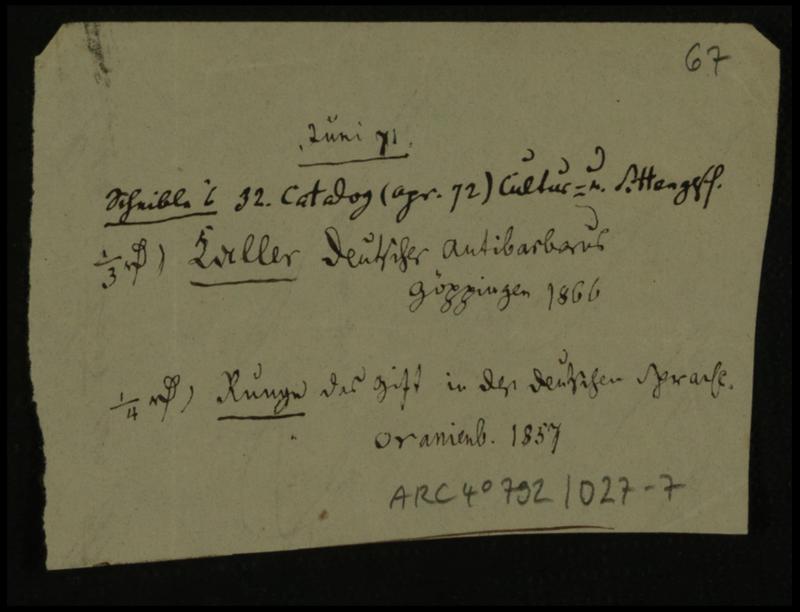 67
Juni 71.
Scheible's 32. Catalog (apr. 72) Cultur= u. Sittengesch.
1/3 rℓ) Keller Deutscher Antibarbarus
Göppingen 1866
1/4 rℓ) Runge das Gift in der deutschen Sprache.
Oranienb. 1857
ARC 4° 792 / 027-7